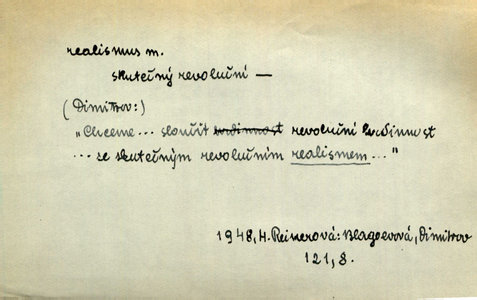 realismus m.
skutečný revoluční —
(Dimitrov:)
"Chceme... sloučit hrdinnost revoluční hrdinnost
... se skutečným revolučním realismem..."
1948, H. Reinerová: Blagoevová, Dimitrov
121, 8.